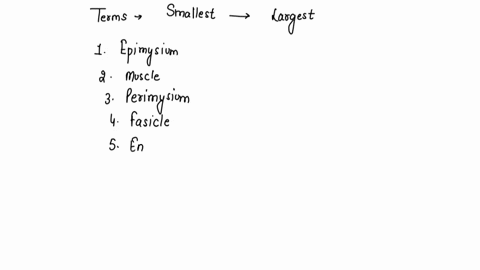 Terms → Smallest → Largest
1. Epimysium
2. Muscle
3. Perimysium
4. Fasicle
5. En